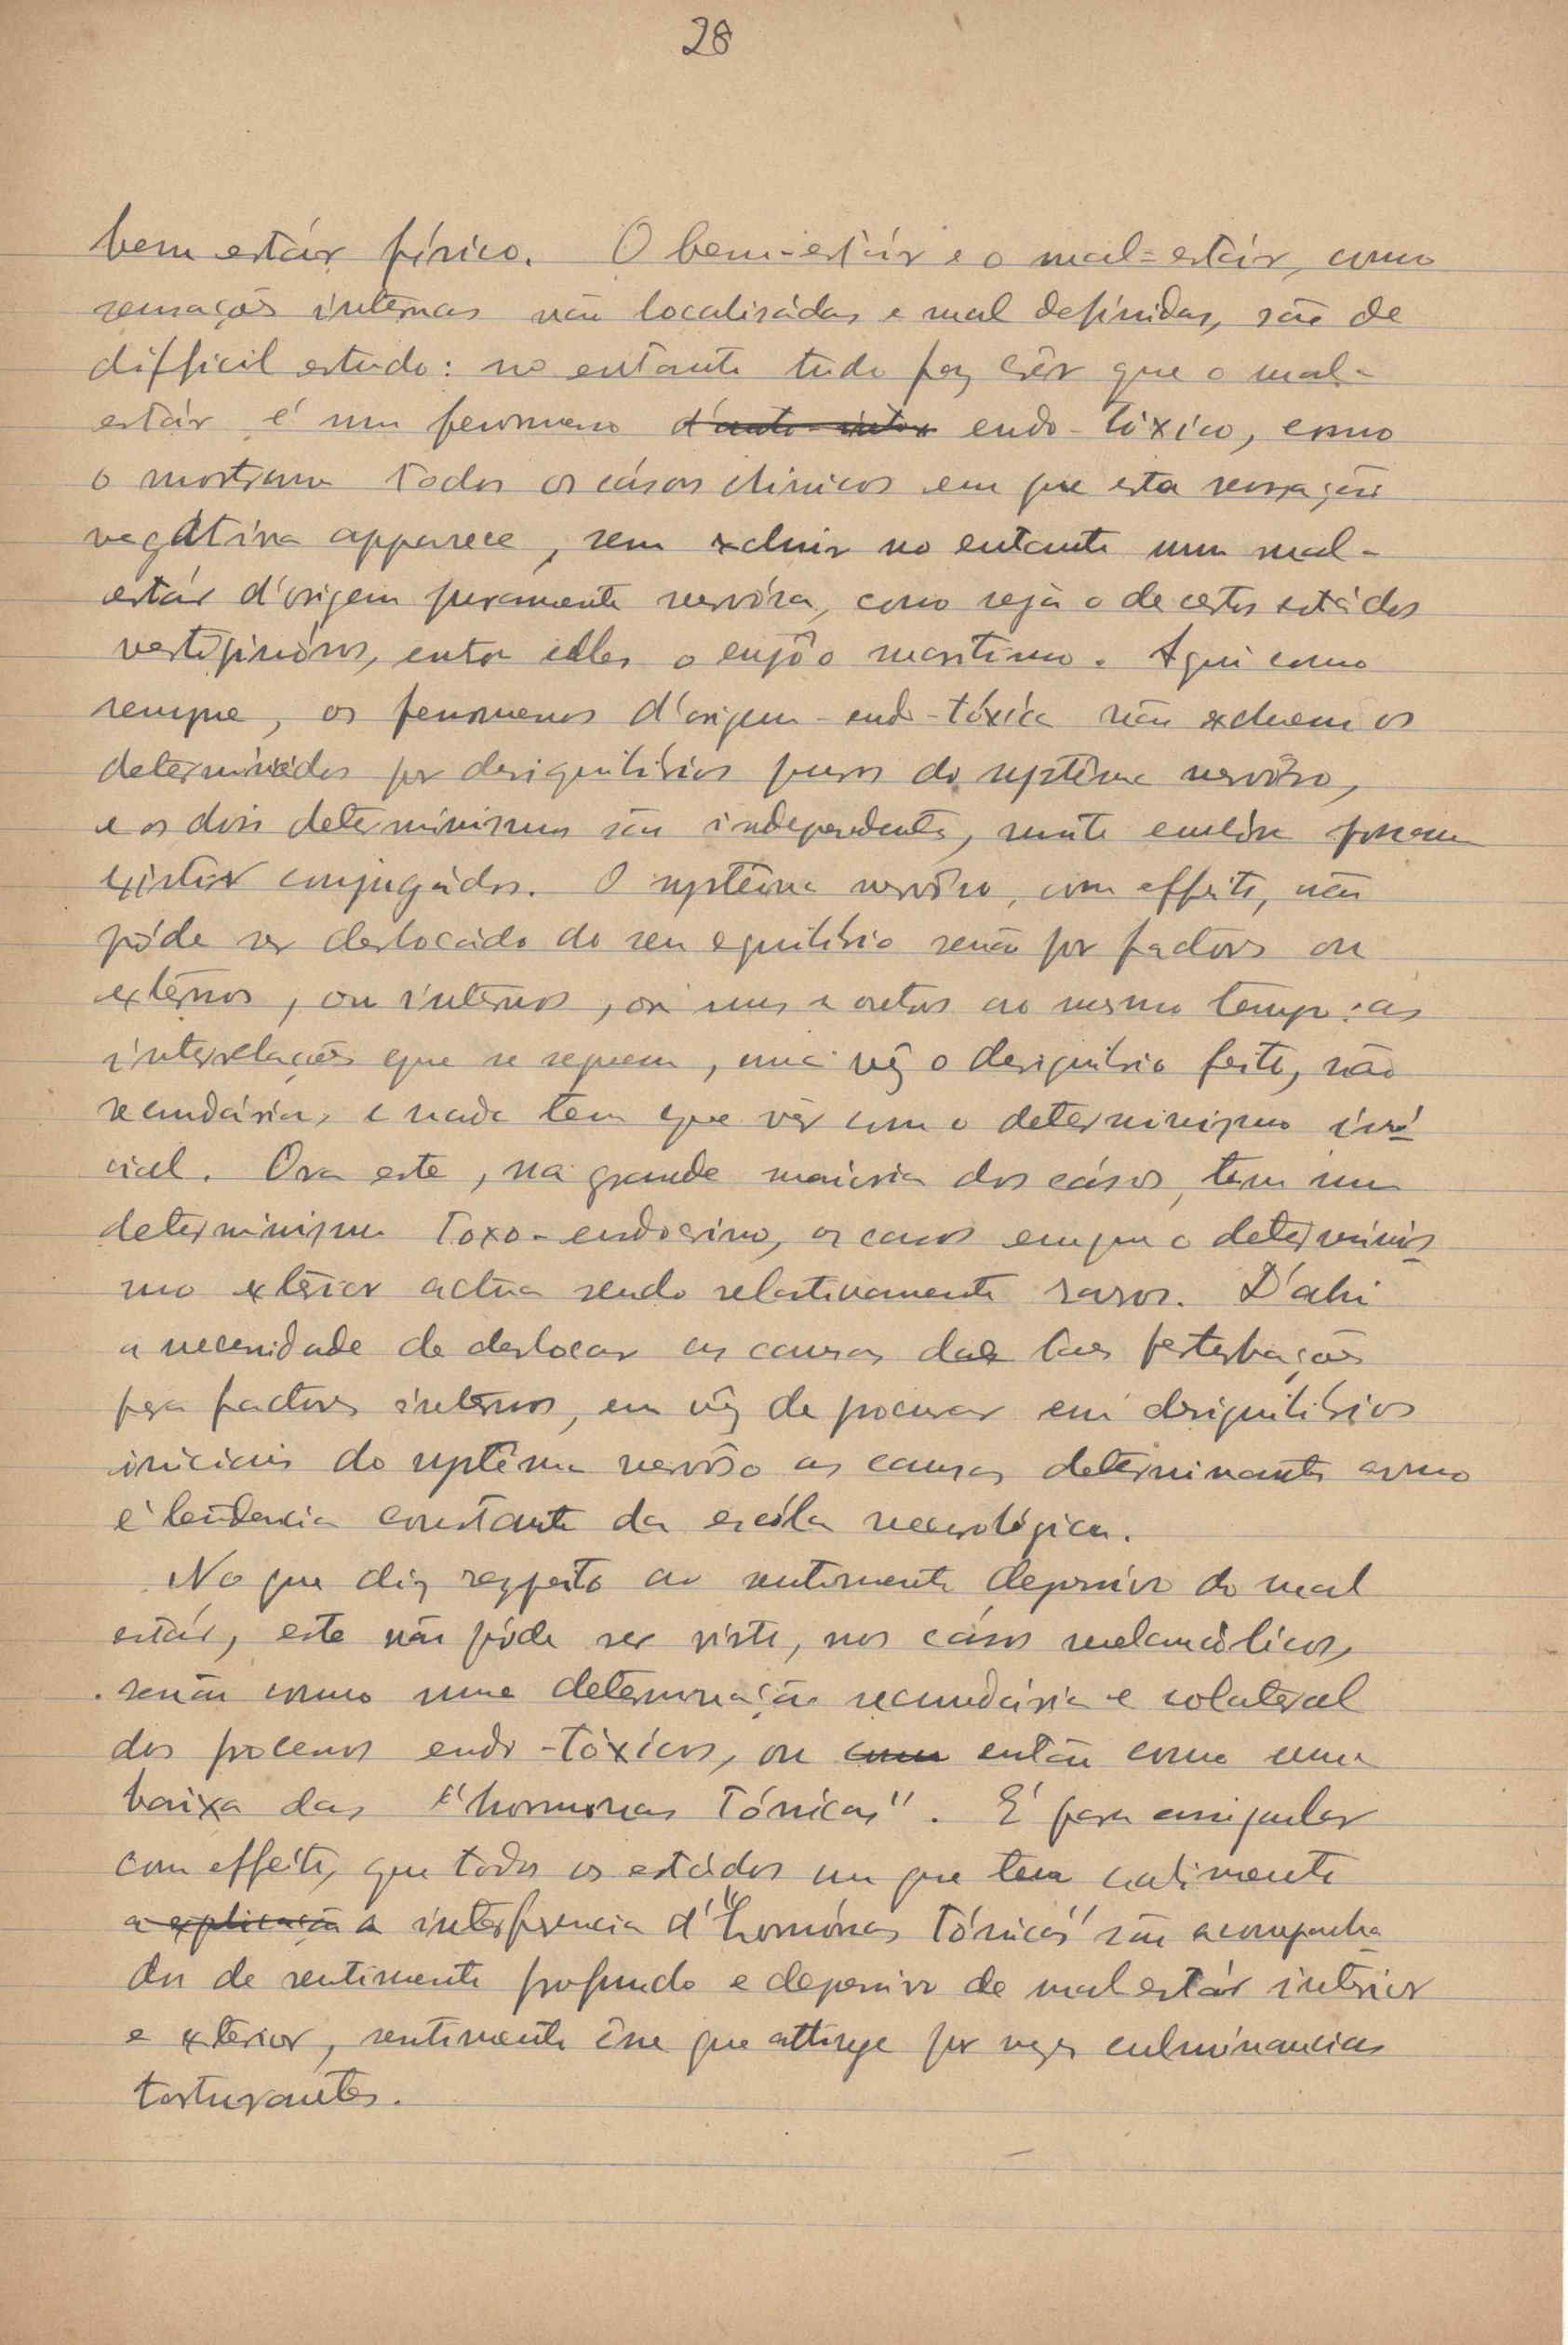 28
bem estár físico. O bem-estár e o mal-estár, como
sensações intérnas não localisádas e mal definidas, são de
difficil estudo: no entanto tudo faz crêr que o mal-
estár é um fenomeno d'auto-intox endo-tóxico, como
o mostram todos os cásos clinicos em que esta sensação
negátiva apparece, sem excluir no entanto um mal-
estár d'origem puramente nervósa, como seja o de certos estádos
vertiginósos, entre elles o enjôo maritimo. Aqui como
sempre, os fenomenos d'origem endo-tóxica não excluem os
determinádos por desiquilibrios puros do systêma nervôso,
e os dois determinismos são independentes, muito embóra possam
existir conjugádos. O systêma nervôso, com effeito, não
póde ser deslocádo do seu equilibrio senão por factores ou
extérnos, ou intérnos, ou uns e outros ao mesmo tempo: as
interrelações que se seguem, uma vêz o desiquibrio feito, são
secundárias e nada tem que vêr com o determinismo iní
cial. Ora este, na grande maioria dos cásos, tem um
determinismo toxo-endocrino, os casos em que o determinis
mo extérior actúa sendo relativamente raros. D'ahi
a necessidade de deslocar as causas das taes perturbações
para factores intérnos, em vêz de procurar em desiquilibrios
iniciais do systêma nervôso as causas determinantes como
é tendencia constante da escóla neurológica.
No que diz respeito ao sentimento depressivo do mal
estár, este não póde ser visto, nos cásos melancólicos,
senão como uma determinação secundária e colateral
dos processos endo-tóxicos, ou como então como uma
baixa das "hormonas tónicas". É para assignalar
com effeito, que todos os estádos em que tem
a explicação a interferencia d'"hormónas tónicas" são acompanha
dos de sentimento profundo e depressivo de mal estár intérior
e extérior, sentimento êsse que attinge por vezes culminancias
torturantes.